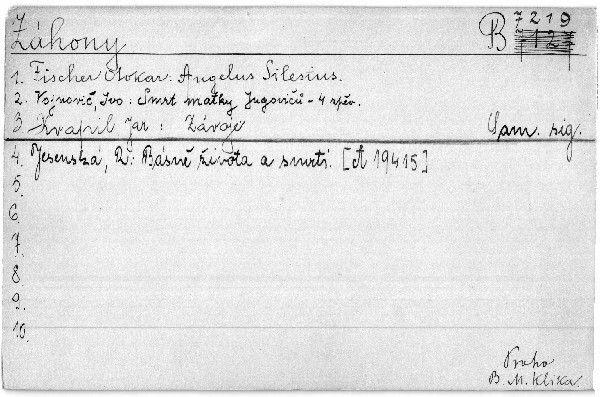 Záhony
B 7219
12
1. Fischer Otokar: Angelus Silesius.
2. Vojnovič, Ivo: Smrt matky Jugovićů - 4 zpěv.
3. Kvapil Jar: Závoje Sam. sig.
4. Jesenská, R: Básně života a smrti. [A 19415]
5.
6.
7.
8.
9.
10.
Praha
B. M. Klika